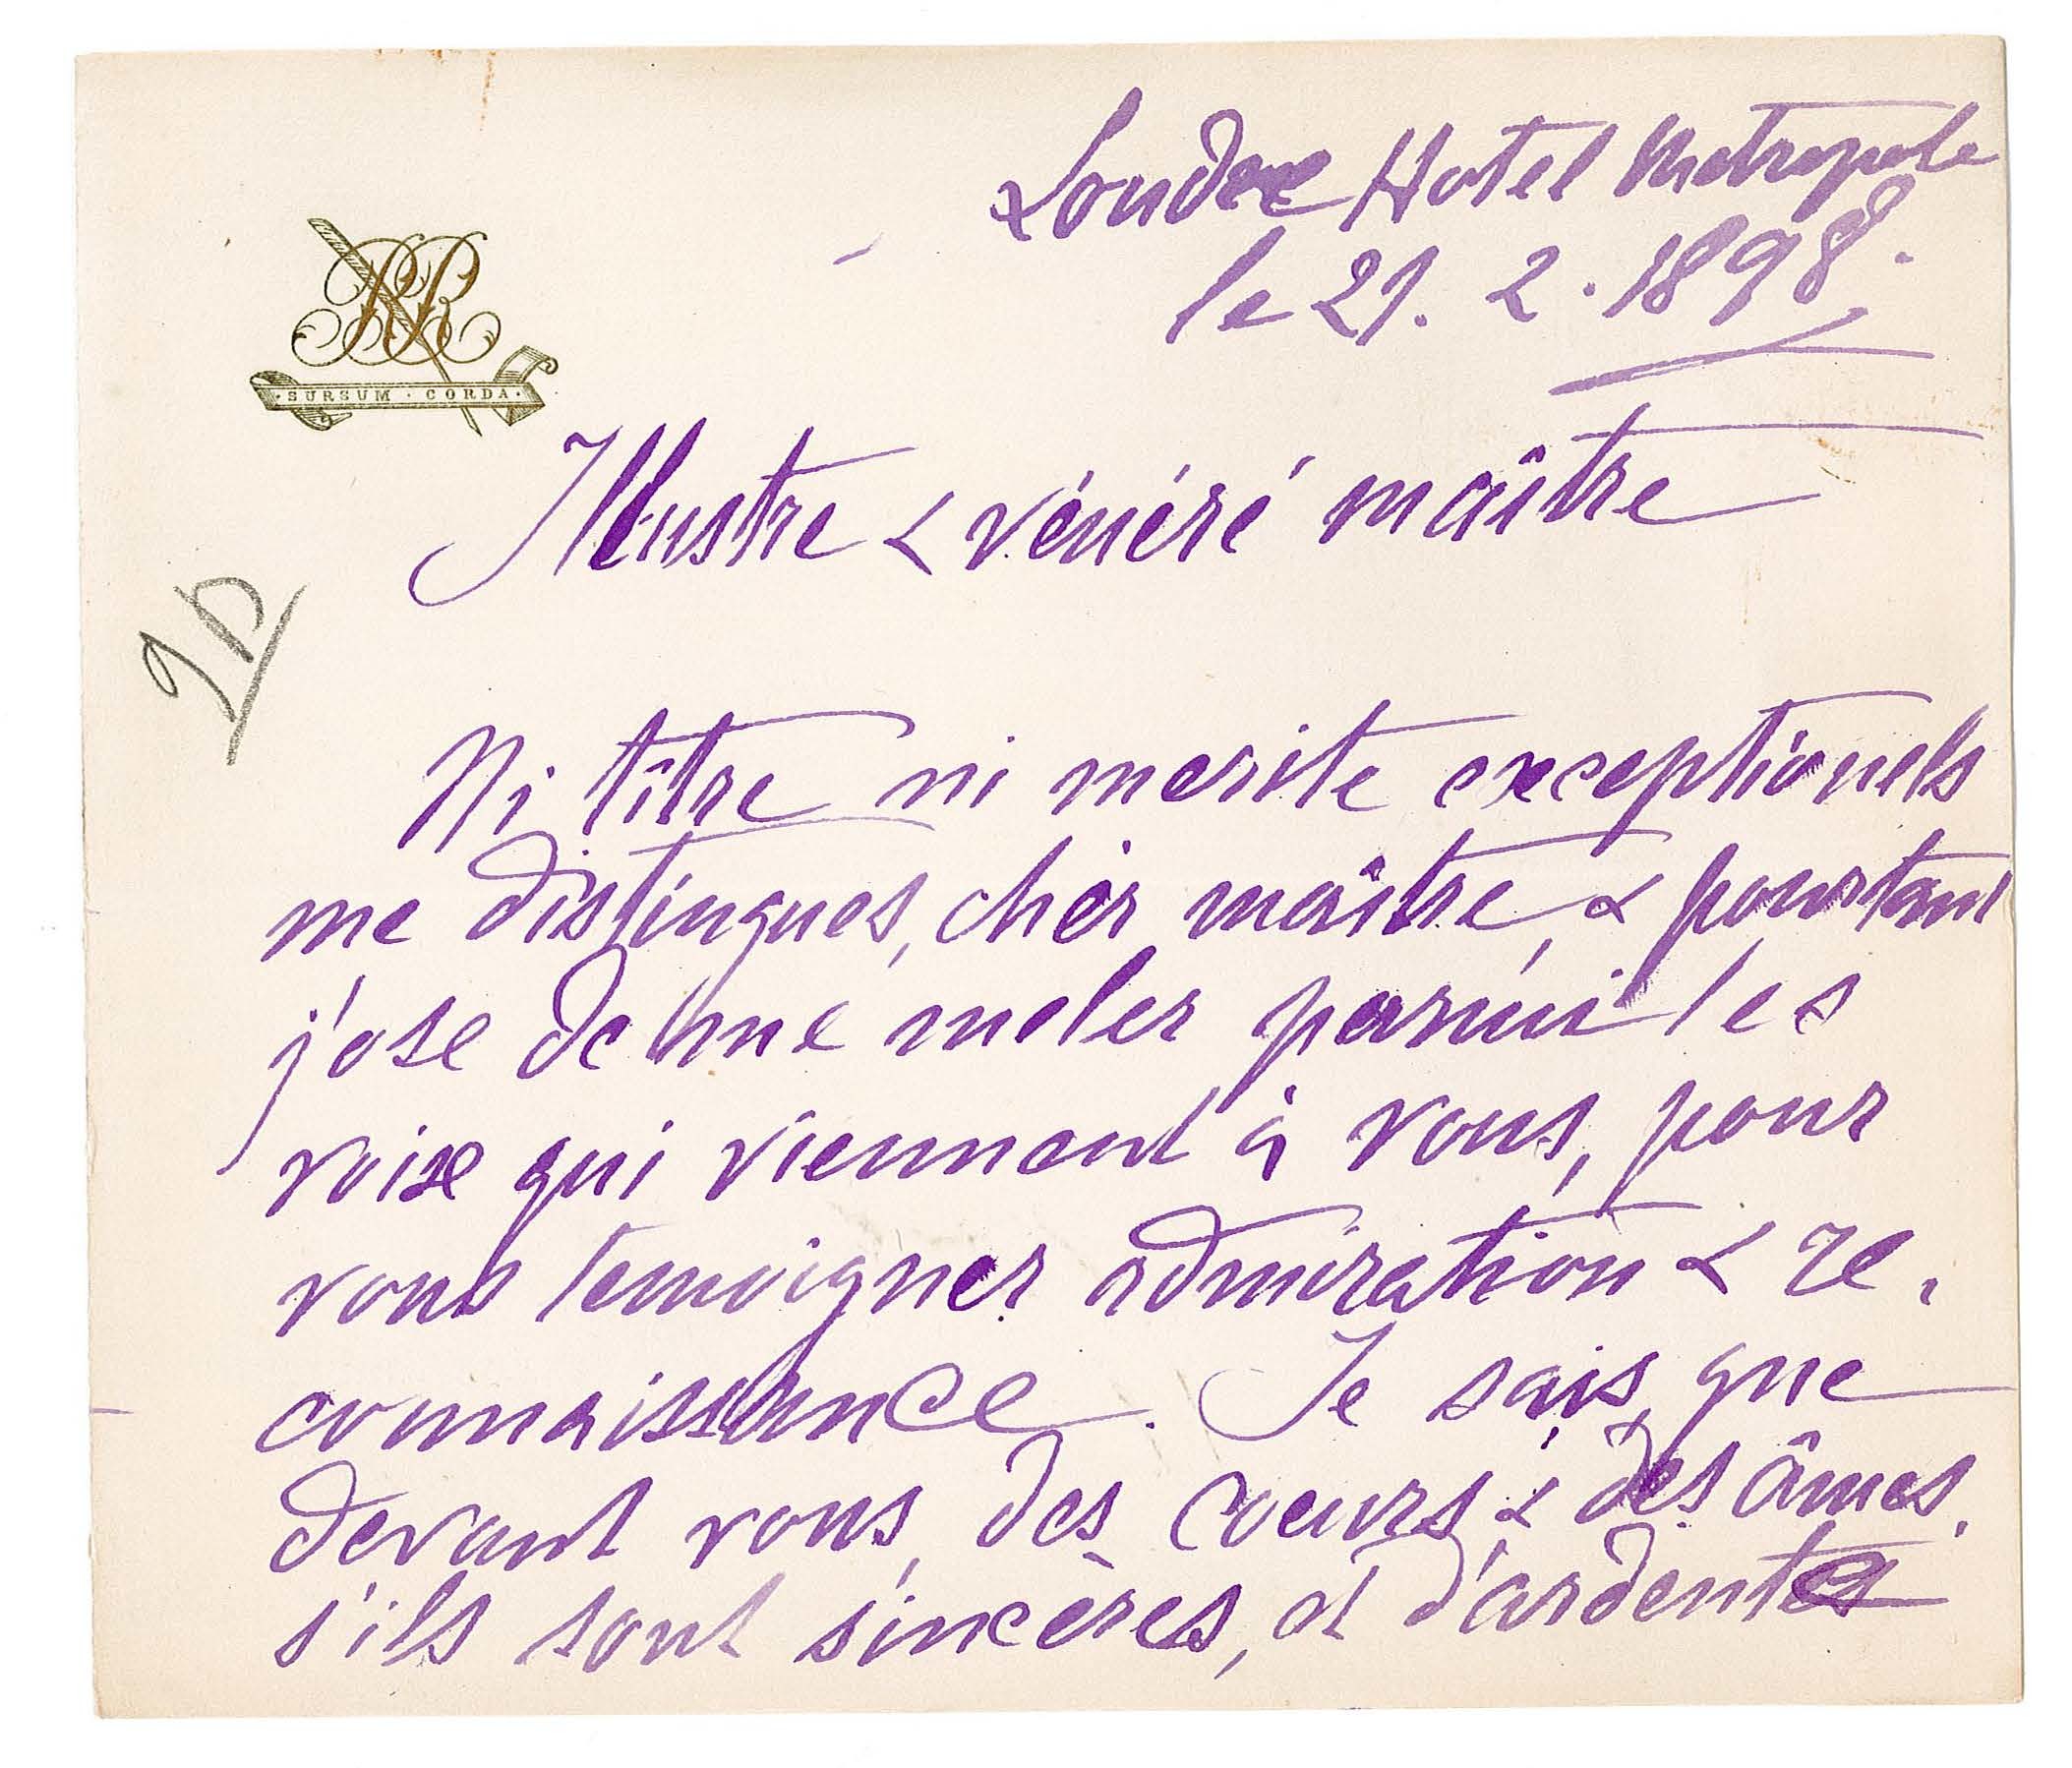 Londre Hotel Metropole
le 21. 2. 1898.
RR
· SURSUM · CORDA ·
Illustre & vénéré maître
Ni titre ni merite exceptionels
me distingues, cher maître, & pourtant
j'ose de me meler parmi les
voix qui viennent à vous, pour
vous temoigner admiration & re-
connaissance. Je sais, que
devant vous, des coeurs, & des âmes,
s'ils sont sincères, et d'ardentes